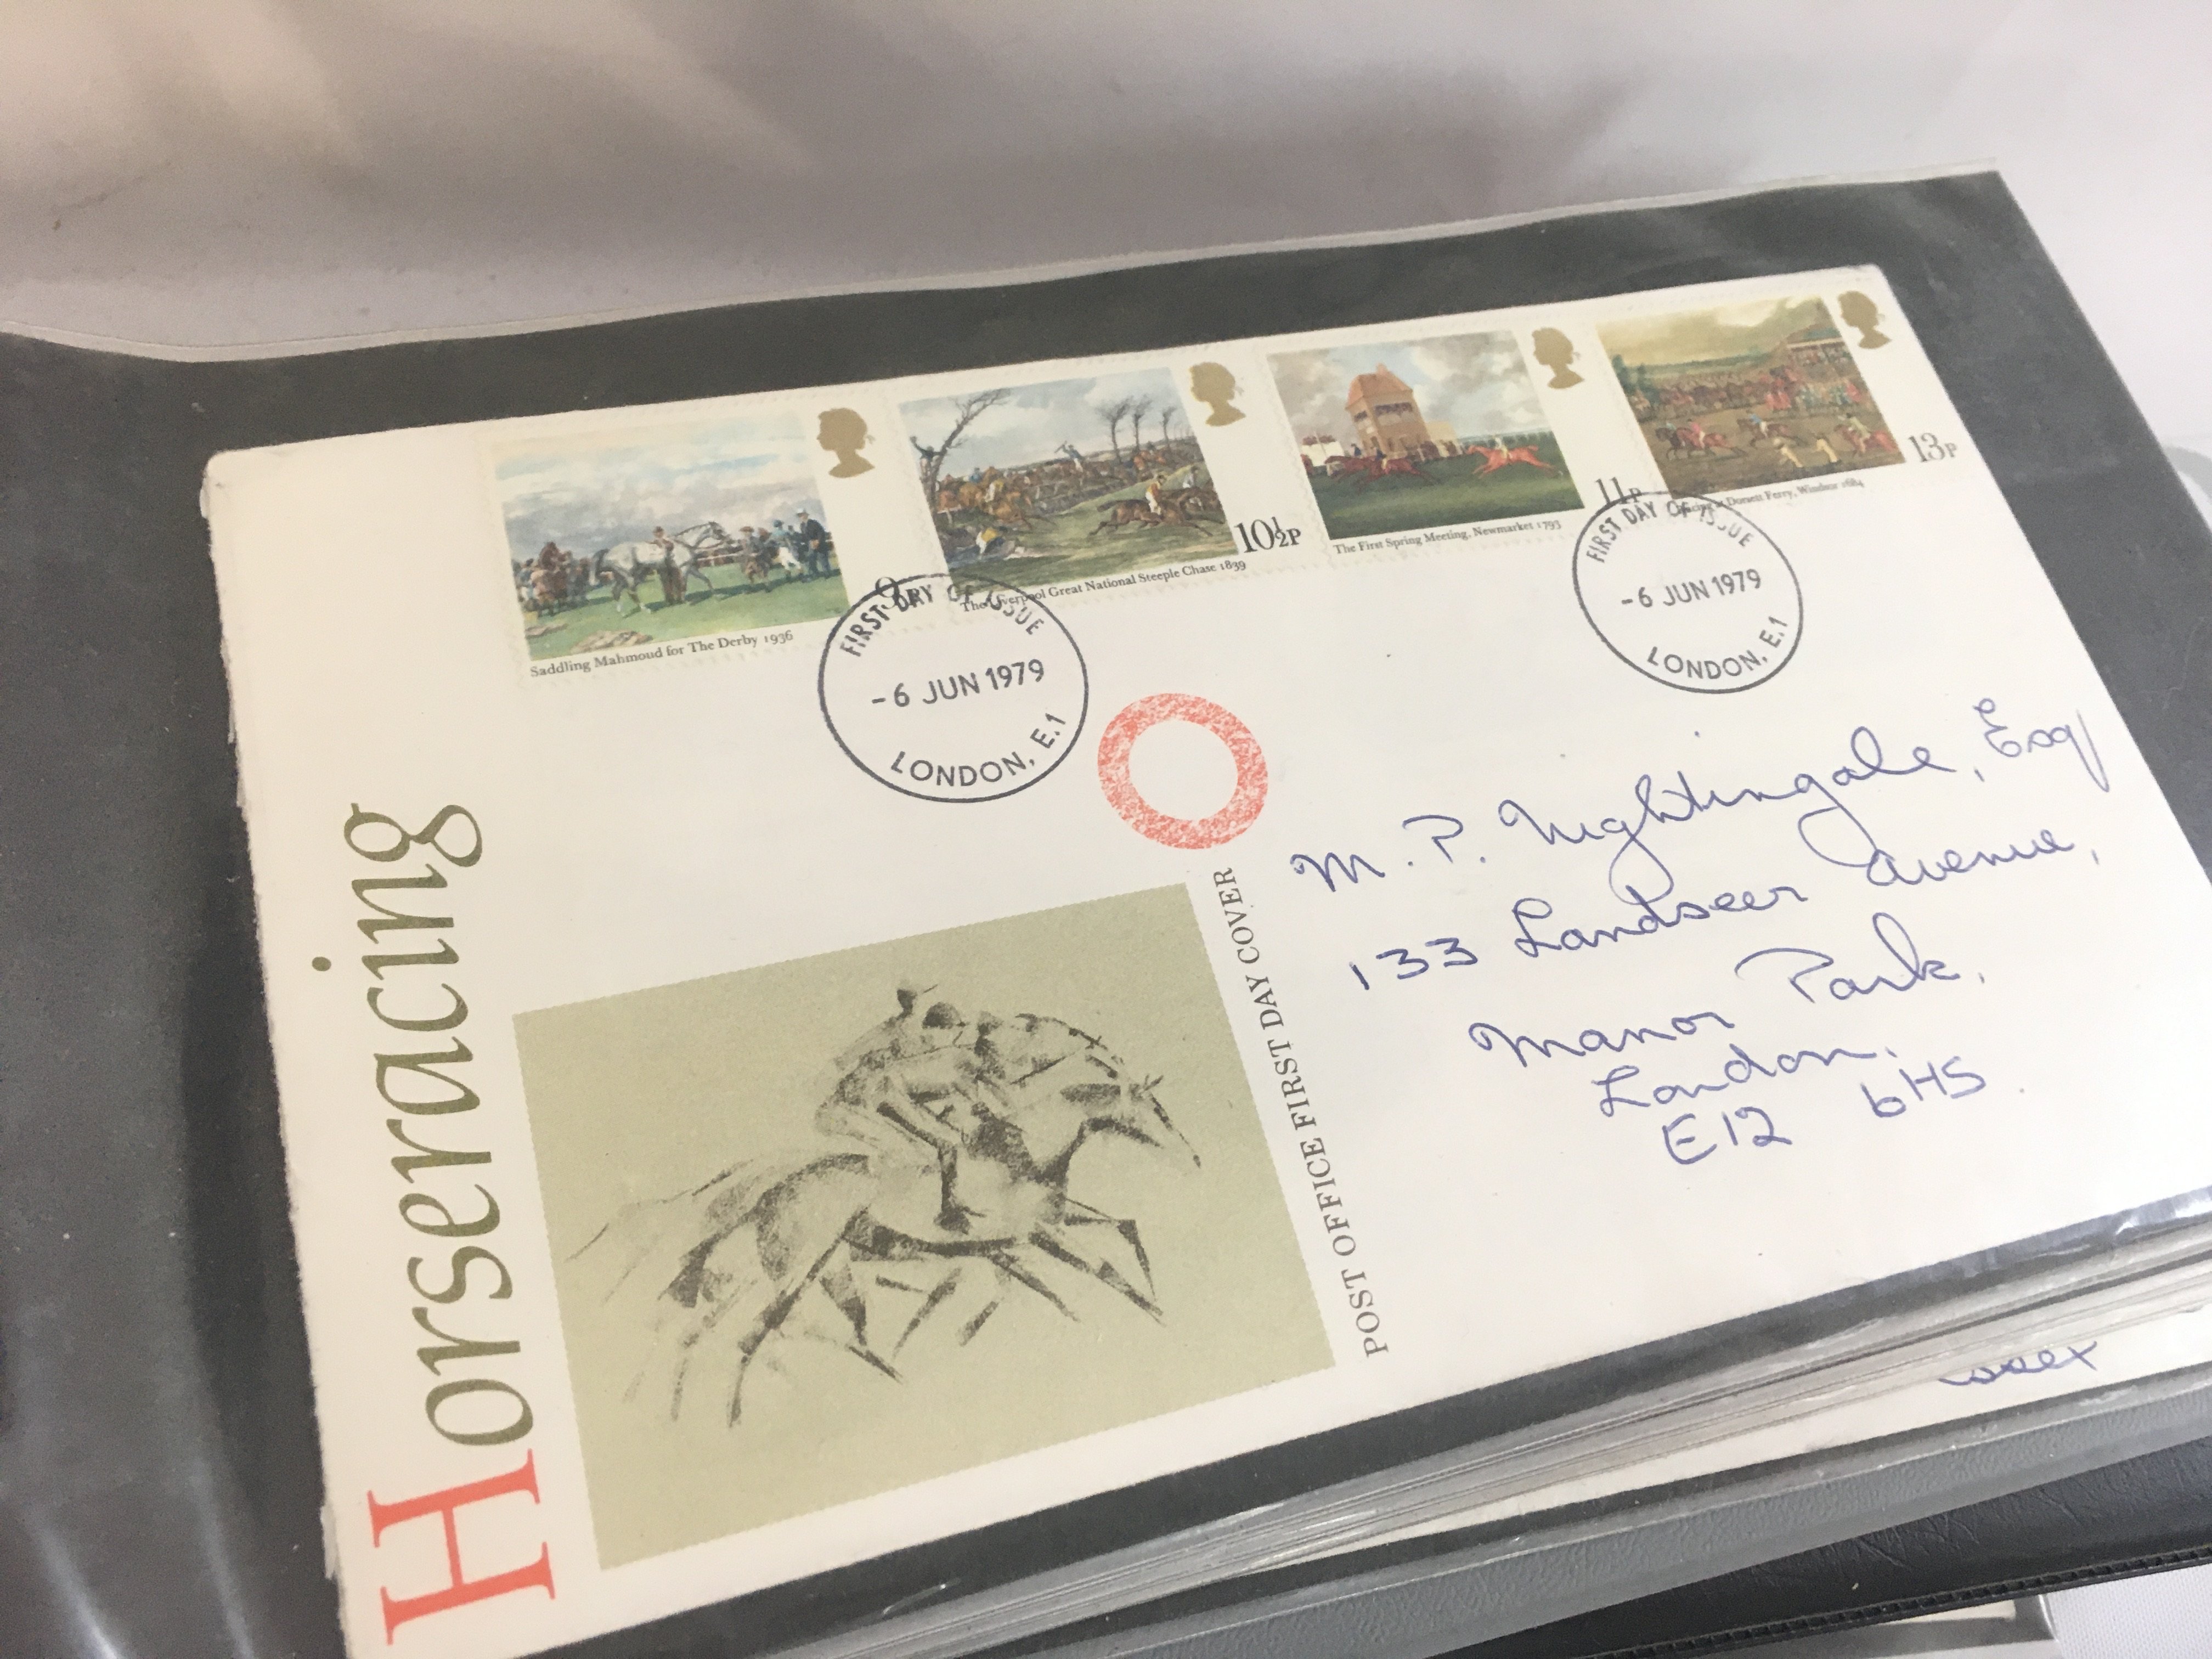 Saddling Mahmoud for The Derby 1936
9P
The Liverpool Great National Steeple Chase 1839
10½P
The First Spring Meeting, Newmarket 1793
11P
Racing at Dorsett Ferry, Windsor 1684
13P
FIRST DAY OF ISSUE
-6 JUN 1979
LONDON, E.1
FIRST DAY OF ISSUE
-6 JUN 1979
LONDON, E.1
Horseracing
POST OFFICE FIRST DAY COVER
M. P. Nightingale, Esq
133 Landseer Avenue,
Manor Park,
London.
E12 6HS.